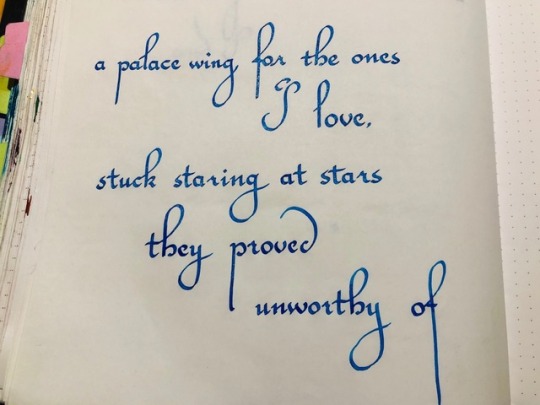 a palace wing for the ones
I love,
stuck staring at stars
they proved
unworthy of